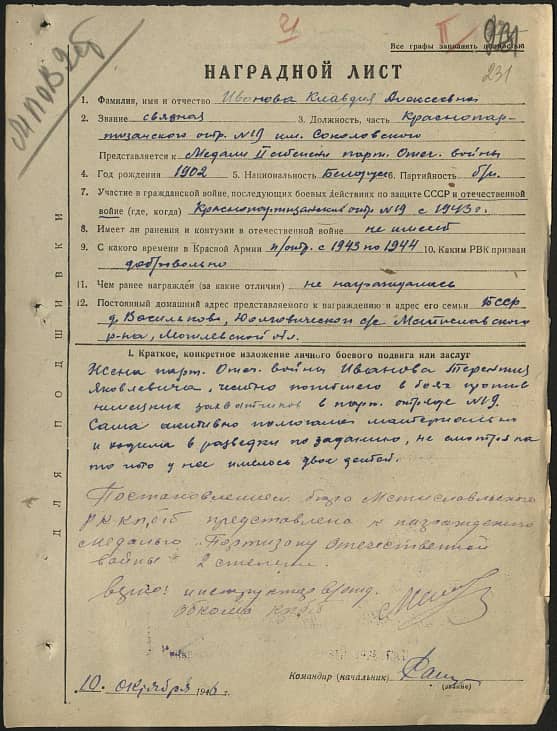 Ч
II
931
231
Все графы заполнять полностью
НАГРАДНОЙ ЛИСТ
1. Фамилия, имя и отчество Иванова Клавдия Алексеевна
2. Звание связная 3. Должность, часть Краснопар-
тизанского отр. №19 им. Соколовского
Представляется к Медали II степени парт. Отеч. войны
4. Год рождения 1902 5. Национальность Белорус 6. Партийность б/п.
7. Участие в гражданской войне, последующих боевых действиях по защите СССР и отечественной
войне (где, когда) Краснопартизанский отр. №19 с 1943 г.
8. Имеет ли ранения и контузии в отечественной войне не имеет
9. С какого времени в Красной Армии п/отр. с 1943 по 1944 10. Каким РВК призван
добровольно
11. Чем ранее награжден (за какие отличия) не награждалась
12. Постоянный домашний адрес представляемого к награждению и адрес его семьи БССР
д. Васильково, с/с Мстиславского
р-на, Могилевской обл.
I. Краткое, конкретное изложение личного боевого подвига или заслуг
Жена парт. Отеч. войны Иванова Терентия
Яковлевича, честно погибшего в боях против
немецких захватчиков в парт. отряде №19.
Сама активно помогала материально
и ходила в разведки по заданию, не смотря на
то что у нее имелось двое детей.
Постановлением бюро Мстиславльского
РК КП(б)Б представлена к награждению
медалью "Партизану Отечественной
войны" 2 степени.
Верно: инструктор
обкома КП(б)Б
10 октября 1946 г.
Командир (начальник)
(звание)
ДЛЯ ПОДШИВКИ